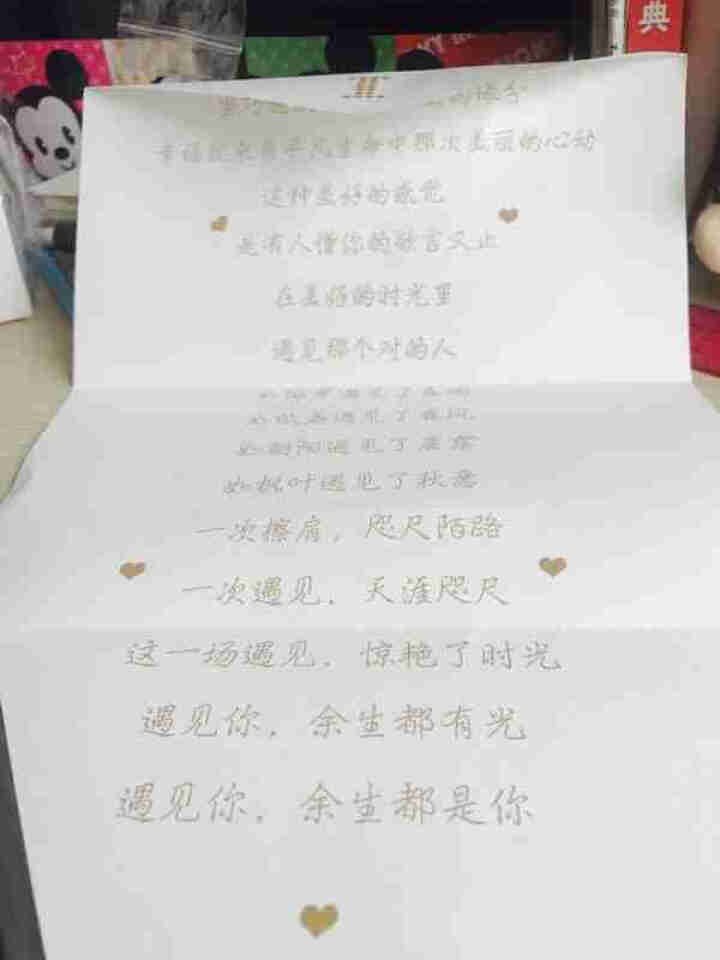 典
的缘分
幸福就来自平凡生命中那次美丽的心动
这种美好的感觉
是有人懂你的欲言又止
在美好的时光里
遇见那个对的人
遇见了
遇见了春风
如朝阳遇见了
如枫叶遇见了秋意
一次擦肩，咫尺陌路
一次遇见，天涯咫尺
这一场遇见，惊艳了时光
遇见你，余生都有光
遇见你，余生都是你